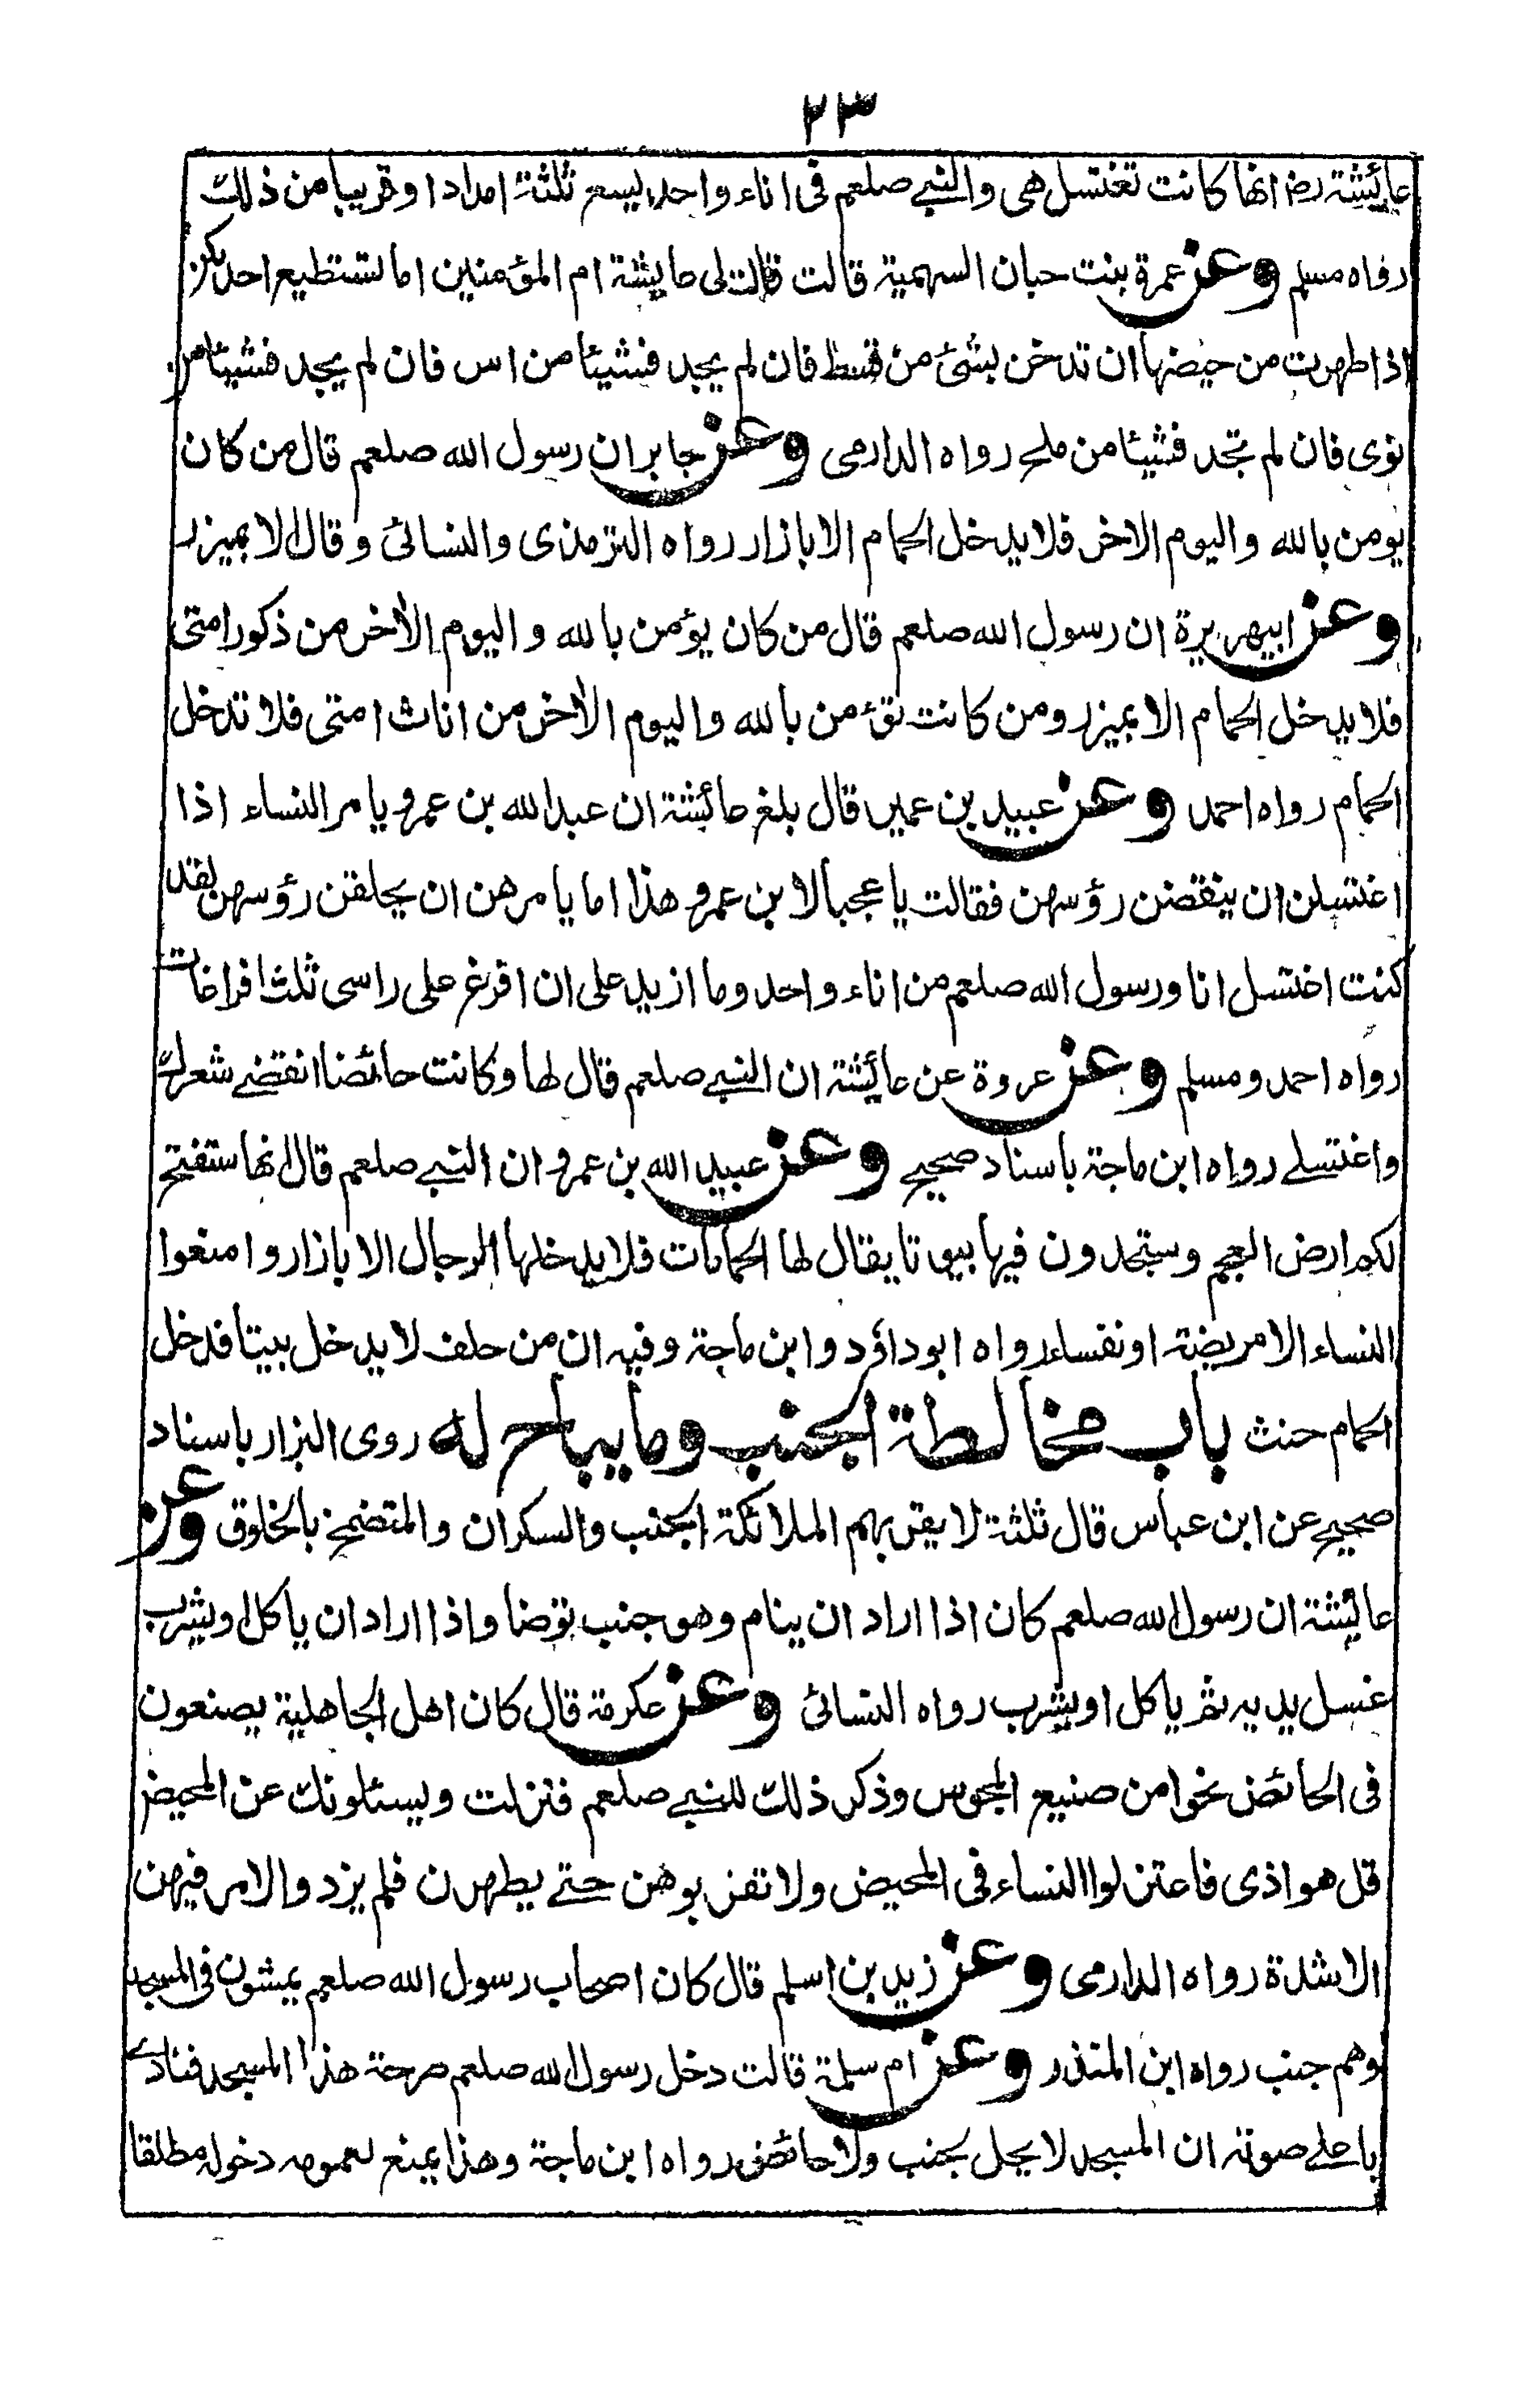 ٢٣
عائشة رض انها كانت تغتسل هى والنبي صلعم فى اناء واحد يسع ثلثة امداد او قريبا من ذلك
رواه مسلم وعن عمرة بنت حبان السهمية قالت قالت لى عايشة ام المؤمنين اما تستطيع احدىكن
اذا طهرت من حيضها ان تدخن بشئ من قسط فان لم يجد فشيئا من اس فان لم يجد فشيئا من
نوى فان لم تجد فشيئا من ملح رواه الدارمى وعن جابر ان رسول الله صلعم قال من كان
يومن بالله واليوم الاخر فلا يدخل الحمام الا بازار رواه الترمذى والنسائى وقال الا بميزر
وعن ابيهريرة ان رسول الله صلعم قال من كان يؤمن بالله واليوم الاخر من ذكور امتى
فلا يدخل الحمام الا بميزر ومن كانت تؤمن بالله واليوم الاخر من اناث امتى فلا تدخل
الحمام رواه احمد وعن عبيد بن عمير قال بلغ عائشة ان عبد الله بن عمرو يامر النساء اذا
اغتسلن ان ينقضن رؤسهن فقالت يا عجبا لابن عمرو هذا اما يامرهن ان يحلقن رؤسهن لقد
كنت اغتسل انا ورسول الله صلعم من اناء واحد وما ازيد على ان افرغ على راسى ثلث افراغات
رواه احمد ومسلم وعن عروة عن عائشة ان النبي صلعم قال لها وكانت حائضا انقضى شعرك
واغتسلى رواه ابن ماجة باسناد صحيح وعن عبيد الله بن عمرو ان النبي صلعم قال انها ستفتح
لكم ارض العجم وستجدون فيها بيوتا يقال لها الحمامات فلا يدخلها الرجال الا بازار وامنعوا
النساء الا مريضة او نفساء رواه ابو داؤد وابن ماجة وفيه ان من حلف لا يدخل بيتا فدخل
الحمام حنث باب مخالطة الجنب وما يباح له روى البزار باسناد
صحيح عن ابن عباس قال ثلثة لا يقربهم الملائكة الجنب والسكران والمتضمخ بالخلوق وعن
عائشة ان رسول الله صلعم كان اذا اراد ان ينام وهو جنب توضا واذا اراد ان ياكل او يشرب
غسل يديه ثم ياكل او يشرب رواه النسائى وعن عكرمة قال كان اهل الجاهلية يصنعون
فى الحائض نحوا من صنيع المجوس وذكر ذلك للنبي صلعم فنزلت ويسئلونك عن المحيض
قل هو اذى فاعتزلوا النساء فى المحيض ولا تقربوهن حتى يطهرن فلم يزد والامر فيهن
الا شدة رواه الدارمى وعن زيد بن اسلم قال كان اصحاب رسول الله صلعم يمشون فى المسجد
وهم جنب رواه ابن المنذر وعن ام سلمة قالت دخل رسول الله صلعم صرحة هذا المسجد فنادى
باعلى صوته ان المسجد لا يحل لجنب ولا حائض رواه ابن ماجة وهذا يمنع لعمومه دخوله مطلقا